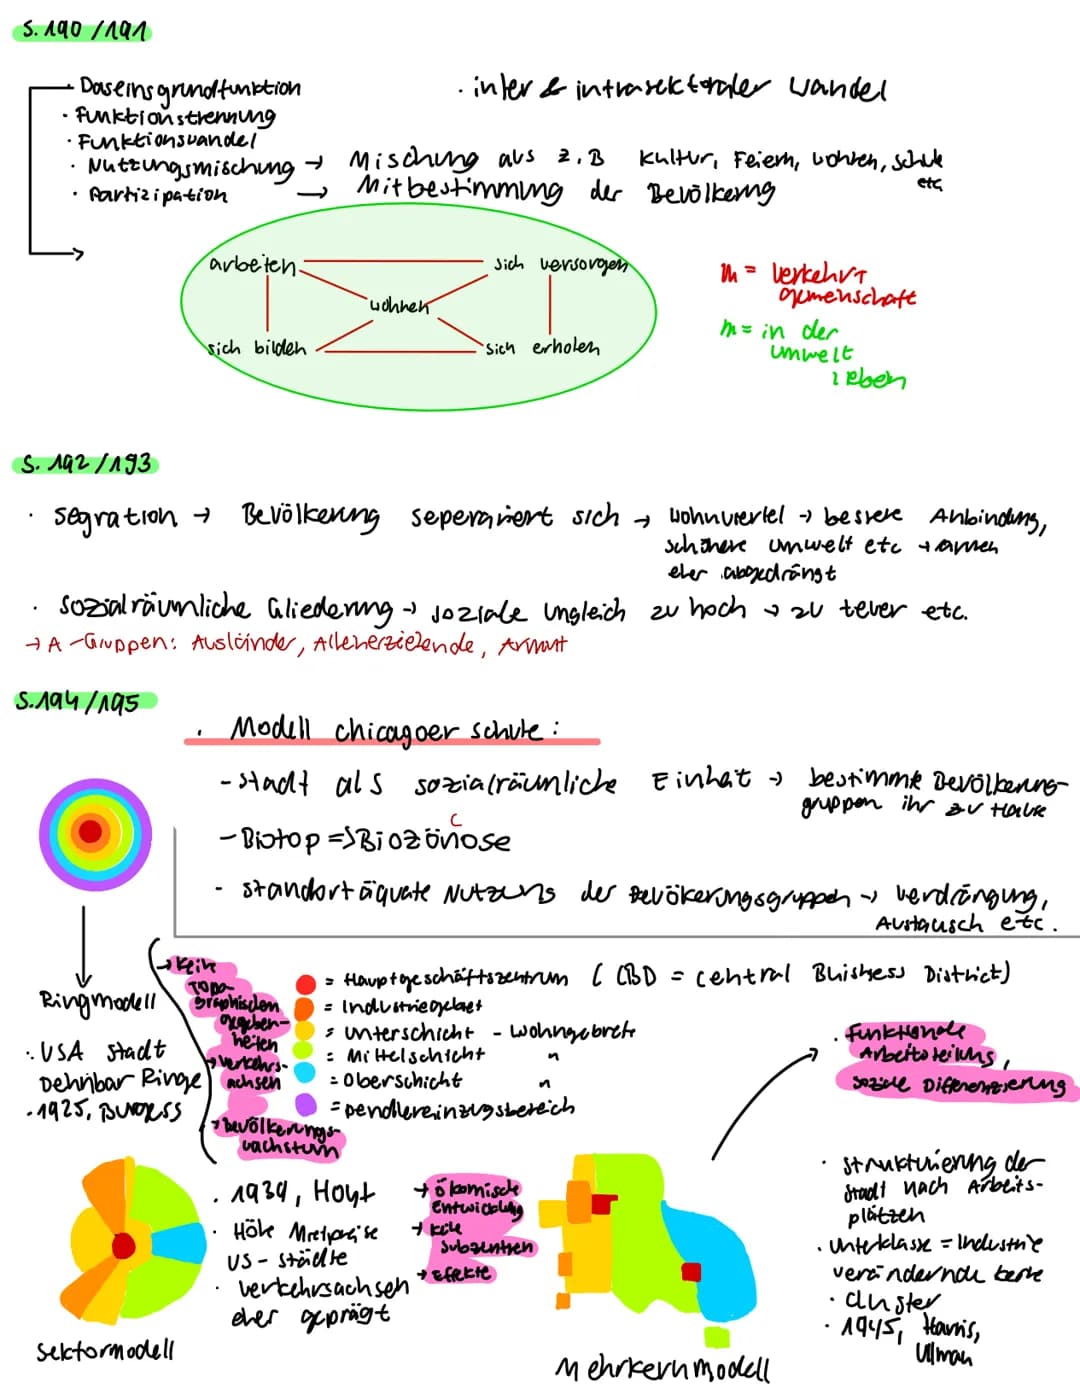 S. 190 / 191
· Daseinsgrundfunktion
· Funktionstrennung
· Funktionswandel
· Nutzungsmischung → Mischung aus z.B Kultur, Feiern, wohnen, schule etc
· Partizipation → Mitbestimmung der Bevölkerung
· inter & intrasektoraler Wandel
arbeiten
sich versorgen
wohnen
sich bilden
sich erholen
m = Verkehrs
gemeinschaft
m = in der
umwelt
leben
S. 192 / 193
· Segration → Bevölkerung seperariert sich → Wohnviertel → bessere Anbindung,
schönere umwelt etc → armen
eher abgedrängt
· Sozialräumliche Gliederung → soziale ungleich zu hoch → zu teuer etc.
→ A-Gruppen: Ausländer, Alleinerziehende, Armut
S. 194 / 195
· Modell chicagoer schule :
- Stadt als sozialräumliche Einheit → bestimmte Bevölkerungs-
gruppen ihr zu Hause
c
- Biotop => Biozönose
- standortäquate Nutzung der Bevökerungsgruppen → verdrängung,
Austausch etc.
Ringmodell
· USA Stadt
Dehnbar Ringe
· 1925, Burgess
→ Keine
Topo-
graphischen
gegeben-
heiten
→ Verkehrs-
achsen
→ Bevölkerungs-
wachstum
= Hauptgeschäftszentrum ( CBD = central Buisness District)
= Industriegebiet
= unterschicht - Wohngebiete
= Mittelschicht "
= Oberschicht "
= pendlereinzugsbereich
· Funktionale
Arbeitsteilung,
soziale Differenzierung
Sektormodell
· 1939, Hoyt
· Höhe Mietpreise
US - städte
· verkehrsachsen
eher geprägt
→ ökomische
Entwicklung
→ keine
Subzentren
→ Effekte
Mehrkernmodell
· Strukturierung der
Stadt nach Arbeits-
plätzen
· unterklasse = Industrie
verändernde kerne
· Cluster
· 1945, Harris,
Ullman